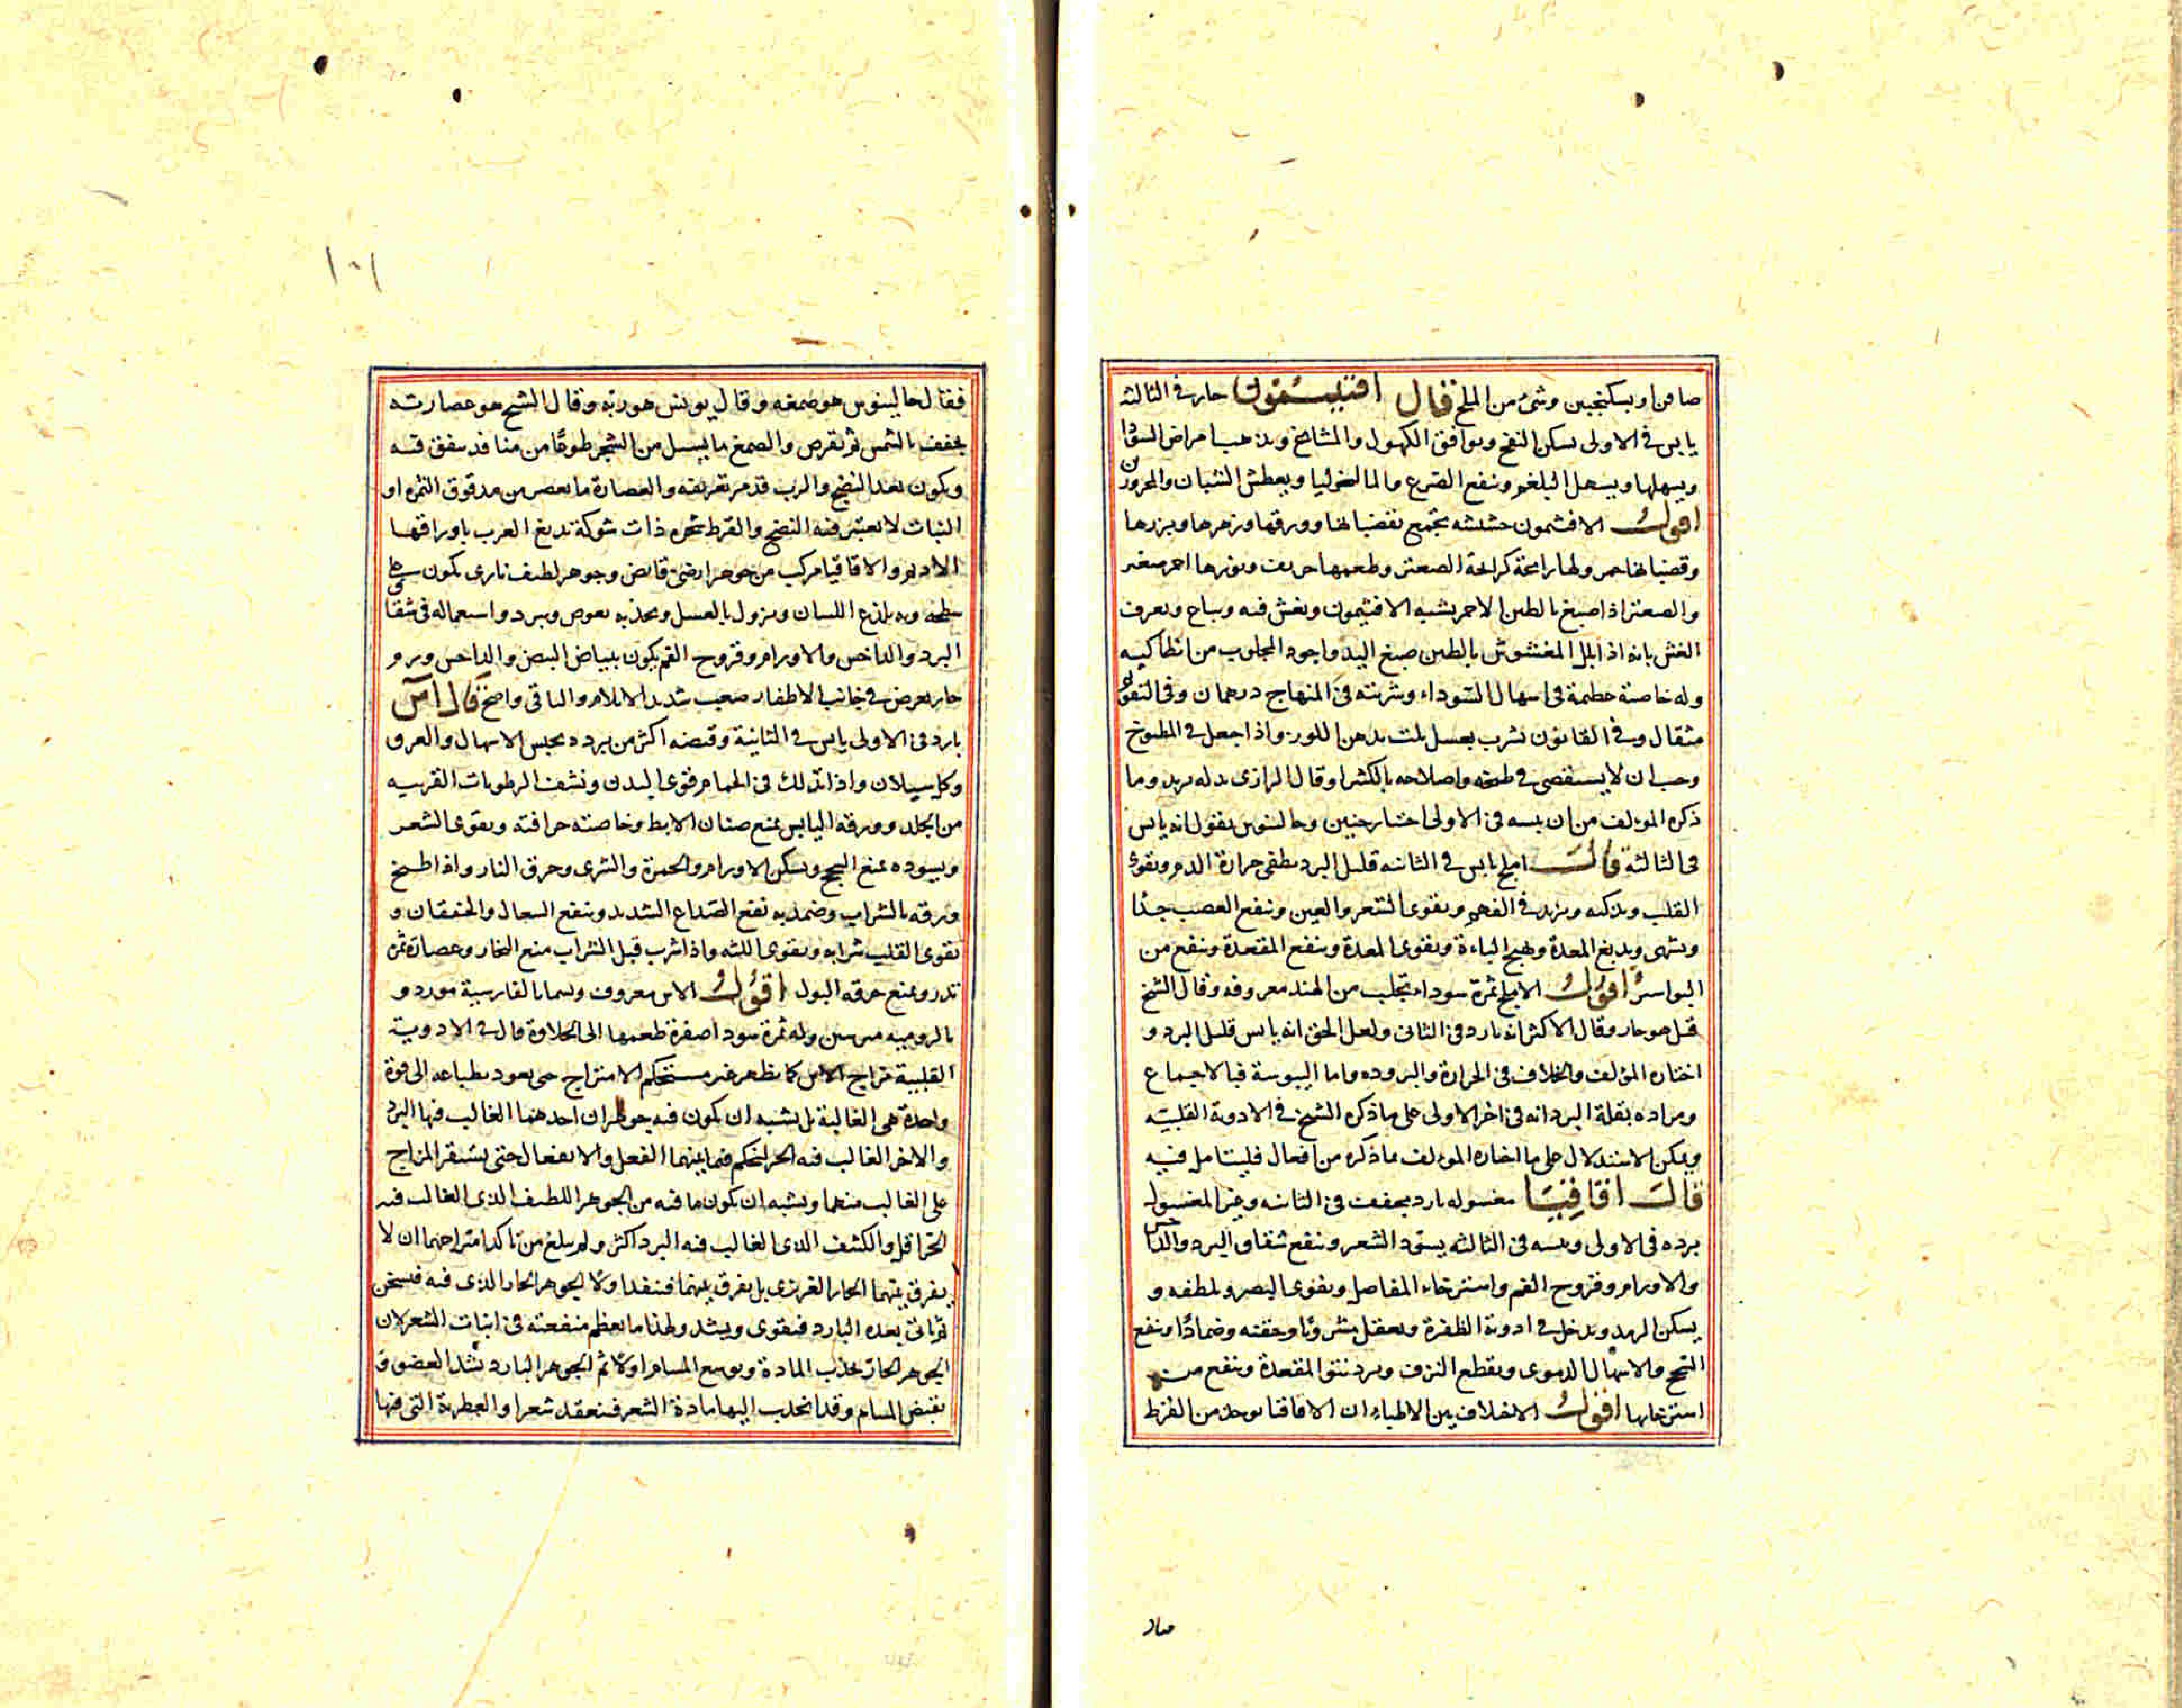 صافن او بسكنجبين وشئ من الملح قال افتيمون حار في الثالثه
يابس في الاولى يسكن النفخ ويوافق الكهول والمشايخ ويذهب امراض السودا
ويسهلها ويسهل البلغم وينفع الصرع والمالنخوليا ويعطش الشبان والمحرورين
اقول الافتيمون حشيشه تجتمع بقضبانها وورقها وزهرها وبزرها
وقضبانها حمر ولها رائحة كرائحة الصعتر وطعمها حريف وبزرها احمر صغير
والصعتر اذا صبغ بالطين الاحمر يشبه الافتيمون ويغش فيه ويباع ويعرف
الغش بانه اذا بلل المغشوش بالطين صبغ اليد واجود المجلوب من انطاكيه
وله خاصية عظيمة في اسهال السوداء وشربته في المنهاج درهمان وفي التقويم
مثقال وفي القانون يشرب بعسل يلت بدهن اللوز واذا جعل في المطبوخ
وجب ان لا يستقصى في طبخه واصلاحه بالكثيرا وقال الرازي بدله تربد وما
ذكره المؤلف من ان يبسه في الاولى اختيار حنين وجالينوس يقول انه يابس
في الثالثة قال املج يابس في الثانيه قليل البرد يطفى حرارة الدم ويقوى
القلب ويذكيه ويزيد في الفهم ويقوى الشعر والعين وينفع العصب جدًا
ويشهى ويدبغ المعدة ويهيج الباءة ويقوى المعدة وينفع المقعدة وينفع من
البواسير اقول الاملج ثمرة سوداء تجلب من الهند معروفه وقال الشيخ
قيل هو حار وقال الاكثر انه بارد في الثاني ولعل الحق انه يابس قليل البرد و
اختاره المؤلف والخلاف في الحرارة والبروده واما اليبوسة فبالاجماع
ومراده بقلة البرد انه في اخر الاولى على ما ذكره الشيخ في الادوية القلبية
ويمكن الاستدلال على ما اختاره المؤلف بما ذكره من افعال فليتامل فيه
قال اقاقيا مغسوله بارد مجفف في الثانيه وغير المغسول
برده في الاولى ويبسه في الثالثه يسود الشعر وينفع شقاق البرد والداحس
والاورام وقروح الفم واسترخاء المفاصل ويقوى البصر ويلطفه و
يسكن الرمد ويدخل في ادوية الظفرة ويعقل مشروبًا وحقنه وضمادًا وينفع
السحج والاسهال الدموى ويقطع النزف ويرد نتو المقعدة وينفع من
استرخايها اقول الاخلاف بين الاطباء ان الاقاقيا يوجد من القرظ
فقال
١٠١
فقال جالينوس هو صمغه وقال بولس هو ربه وقال الشيخ هو عصارته
يجفف بالشمس ثم يقرص والصمغ ما يسيل من الشجر طوعًا من منافذ يتفق فيه
ويكون بعد النضج والرب قد مر تعريفه والعصارة ما يعصر من مدقوق الثمره او
النبات لا يعتبر فيه النضج والقرظ شجره ذات شوكة تدبغ العرب باوراقها
الاديم والاقاقيا مركب من جوهر ارضى قابض وجوهر لطيف نارى يكون على
سطحه وبه يلذع اللسان ويزول بالغسل وبحذبه يغوص ويبرد واستعماله في شقاق
البرد والداحس والاورام وقروح الفم يكون ببياض البيض والداحس ورم
حار يعرض في جانب الاظفار صعب شديد الايلام والباقى واضح قال آس
بارد في الاولى يابس في الثانية وقبضه اكثر من برده يحبس الاسهال والعرق
وكل سيلان واذا تدلك في الحمام قوى البدن ونشف الرطوبات القريبه
من الجلد وورقه اليابس يمنع صنان الابط وخاصته حراقته ويقوى الشعر
ويسوده يمنع السحج ويسكن الاورام والحمرة والشرى وحرق النار واذا طبخ
ورقه بالشراب وضمد به نفع الصداع الشديد وينفع السعال والخفقان و
يقوى القلب شرابه ويقوى اللثه واذا شرب قبل الشراب منع الخمار وعصارة ثمره
تدر ويمنع حرقه البول اقول الآس معروف ويسما بالفارسية مورد و
بالروميه مرسين وله ثمرة سودا صفرة طعمها الى الحلاوة قال في الادوية
القلبية مزاج الآس كما يظهر غير مستحكم الامتزاج حتى يعود بطباعه الى قوة
واحدة هي الغالبة بل يشبه ان يكون فيه جوهران احدهما الغالب فيها البرد
والاخر الغالب فيه الحر لم يحكم فيما بينهما الفعل والانفعال حتى يستقر المزاج
على الغالب منهما ويشبه ان يكون ما فيه من الجوهر اللطيف الذي الغالب فيه
الحر اقل والكثيف الذي الغالب فيه البرد اكثر ولم يبلغ من تاكد امتزاجهما ان لا
يفرق بينهما الحار الغريزى بل يفرق بينهما فينفذ اولا الجوهر الحار الذي فيه فيسخن
ثم ياتى بعده البارد فيقوى ويشد ولهذا ما يعظم منفعته في انبات الشعر لان
الجوهر الحار يجذب المادة ويوسع المسام اولا ثم الجوهر البارد يشد العضو و
يقبض المسام وقد انجذب اليها مادة الشعر فينعقد شعرا والعطرية التي فيها